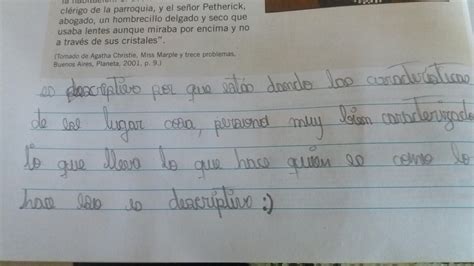 clérigo de la parroquia, y el señor Petherick,
abogado, un hombrecillo delgado y seco que
usaba lentes aunque miraba por encima y no
a través de sus cristales”.
(Tomado de Agatha Christie, Miss Marple y trece problemas,
Buenos Aires, Planeta, 2001, p. 9.)
es descriptivo por que están dando las características
de ese lugar cosa, personas muy bien caracterizado
lo que lleva lo que hace quien es como lo
hace eso es descriptivo :)